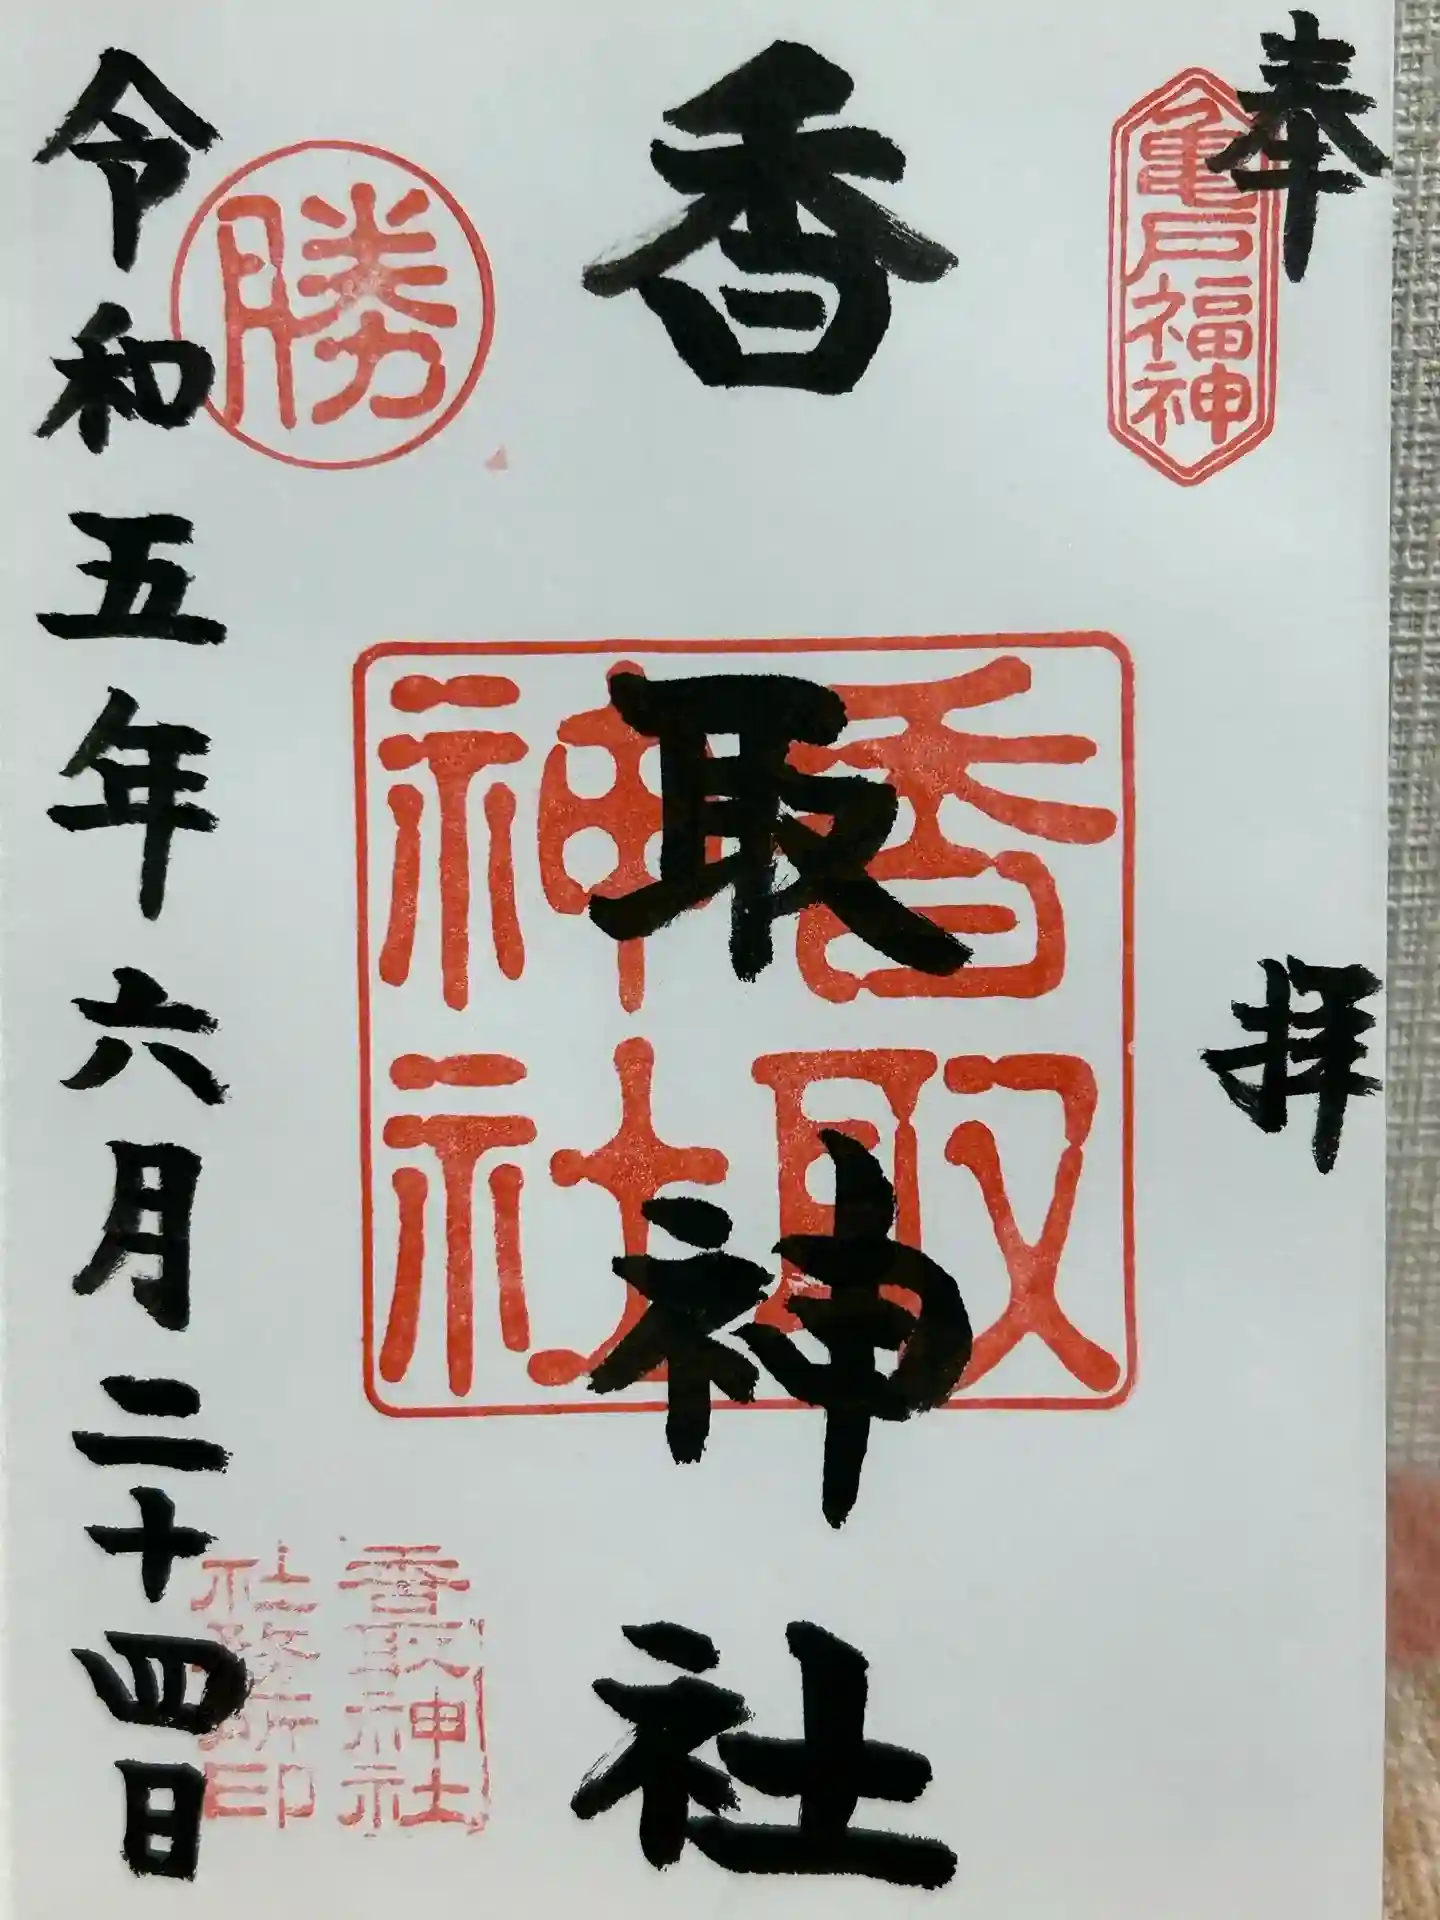 奉拝
亀戸福神
香取神社
香取
神社
勝
香取神社
社務所印
令和五年六月二十四日